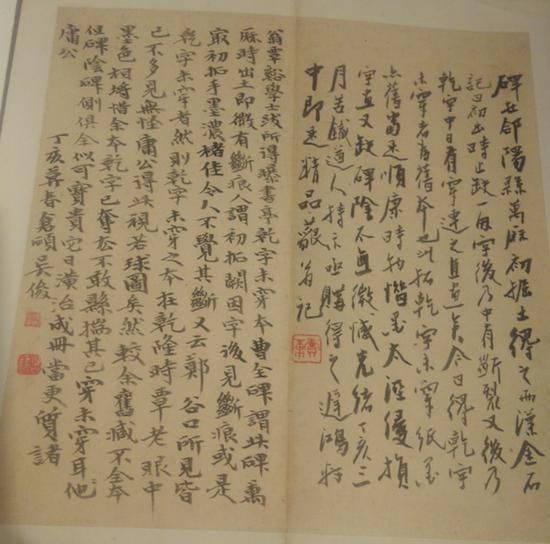 碑在郃陽縣萬厤初掘土得之兩漢金石
記曰初出時止缺一因字後乃中有斷裂又後乃
乾字中日有穿連之直直矣今曰得乾字
未穿者為舊本也此拓乾字未穿紙墨
亦舊當是順康時物惜墨太溼侵損
字直又缺碑陰不無微憾光緒丁亥三
月苦鐵道人持示亟購得之淮鴻
中即是精品藏翁記
翁覃谿學士跋所得曝書亭乾字未穿本曹全碑謂此碑萬
厤時出土即微有斷痕人謂初拓闕因字後見斷痕或是
最初拓手墨濃楮佳令人不覺其斷又云鄭谷口所見皆
乾字未穿者然則乾字未穿之本在乾隆時覃老眼中
已不多見無怪庸公得此視若球圖矣然較余舊臧不全本
墨色相埒惜余本乾字已奪去不敢縣揣其已穿未穿耳他
但碑陰碑側俱全似可寶貴它日潢治成冊當更質諸
庸公
丁亥莫春倉碩吳俊